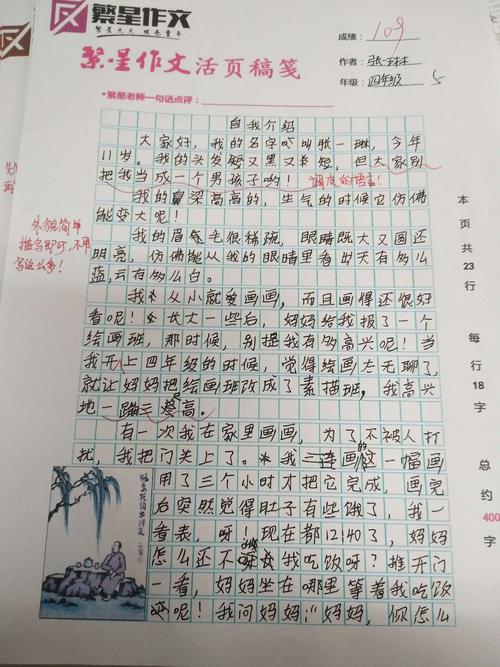 繁星作文
繁星点点 照亮童年
繁星作文活页稿笺
成绩：109
作者：张一琳
年级：四年级
5
•繁星老师一句话点评：
自我介绍
大家好，我的名字叫张一琳，今年
11岁。我的头发短又黑又短，但大家别
把我当成一个男孩子哟！
调皮的语言！
我的鼻梁高高的，生气的时候它仿佛
能变大呢！
我的眉毛很稀疏，眼睛既大又圆还
明亮，仿佛能从我的眼睛里看出天有多么
蓝，云有多么白。
外貌简单
描写即可，不用
写这么多！
我从小就爱画画，而且画得还很好
看呢！长大一些后，妈妈给我报了一个
绘画班，那时候，别提我有多高兴呢！当
我升上四年级的时候，觉得绘画太无聊了，
就让妈妈把绘画班改成了素描班，我高兴
地一蹦三尺高。
有一次我在家里画画，为了不被人打
扰，我把门关上了。我画的这一幅画
用了三个小时才把它完成，画完
后突然觉得肚子有些饿了，我一
看表，呀！现在都12:40了，妈妈
怎么还不喊我吃饭呀？推开门
一看，妈妈坐在哪里等着我吃饭
呢！我问妈妈：“妈妈，你怎么
本页共23行
每行18字
总约400字